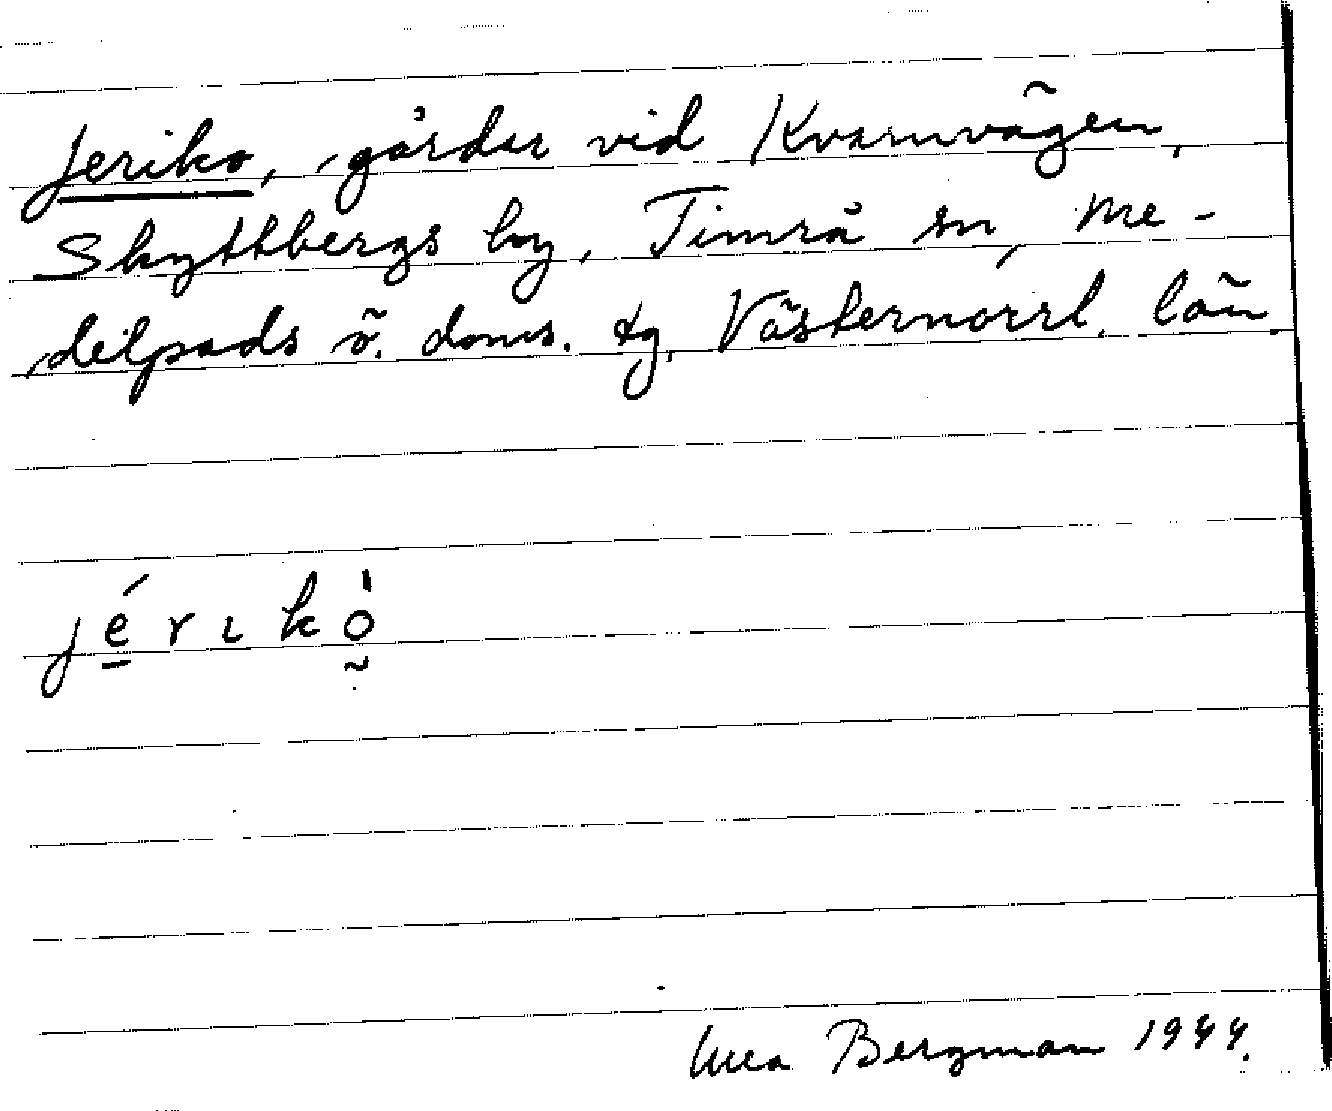 Jeriko, gårdar vid Kvarnvägen,
Skyttbergs by, Timrå sn, Me-
delpads ö. doms. tg, Västernorrl. län.
jérıkò̰
Bergman 1944.